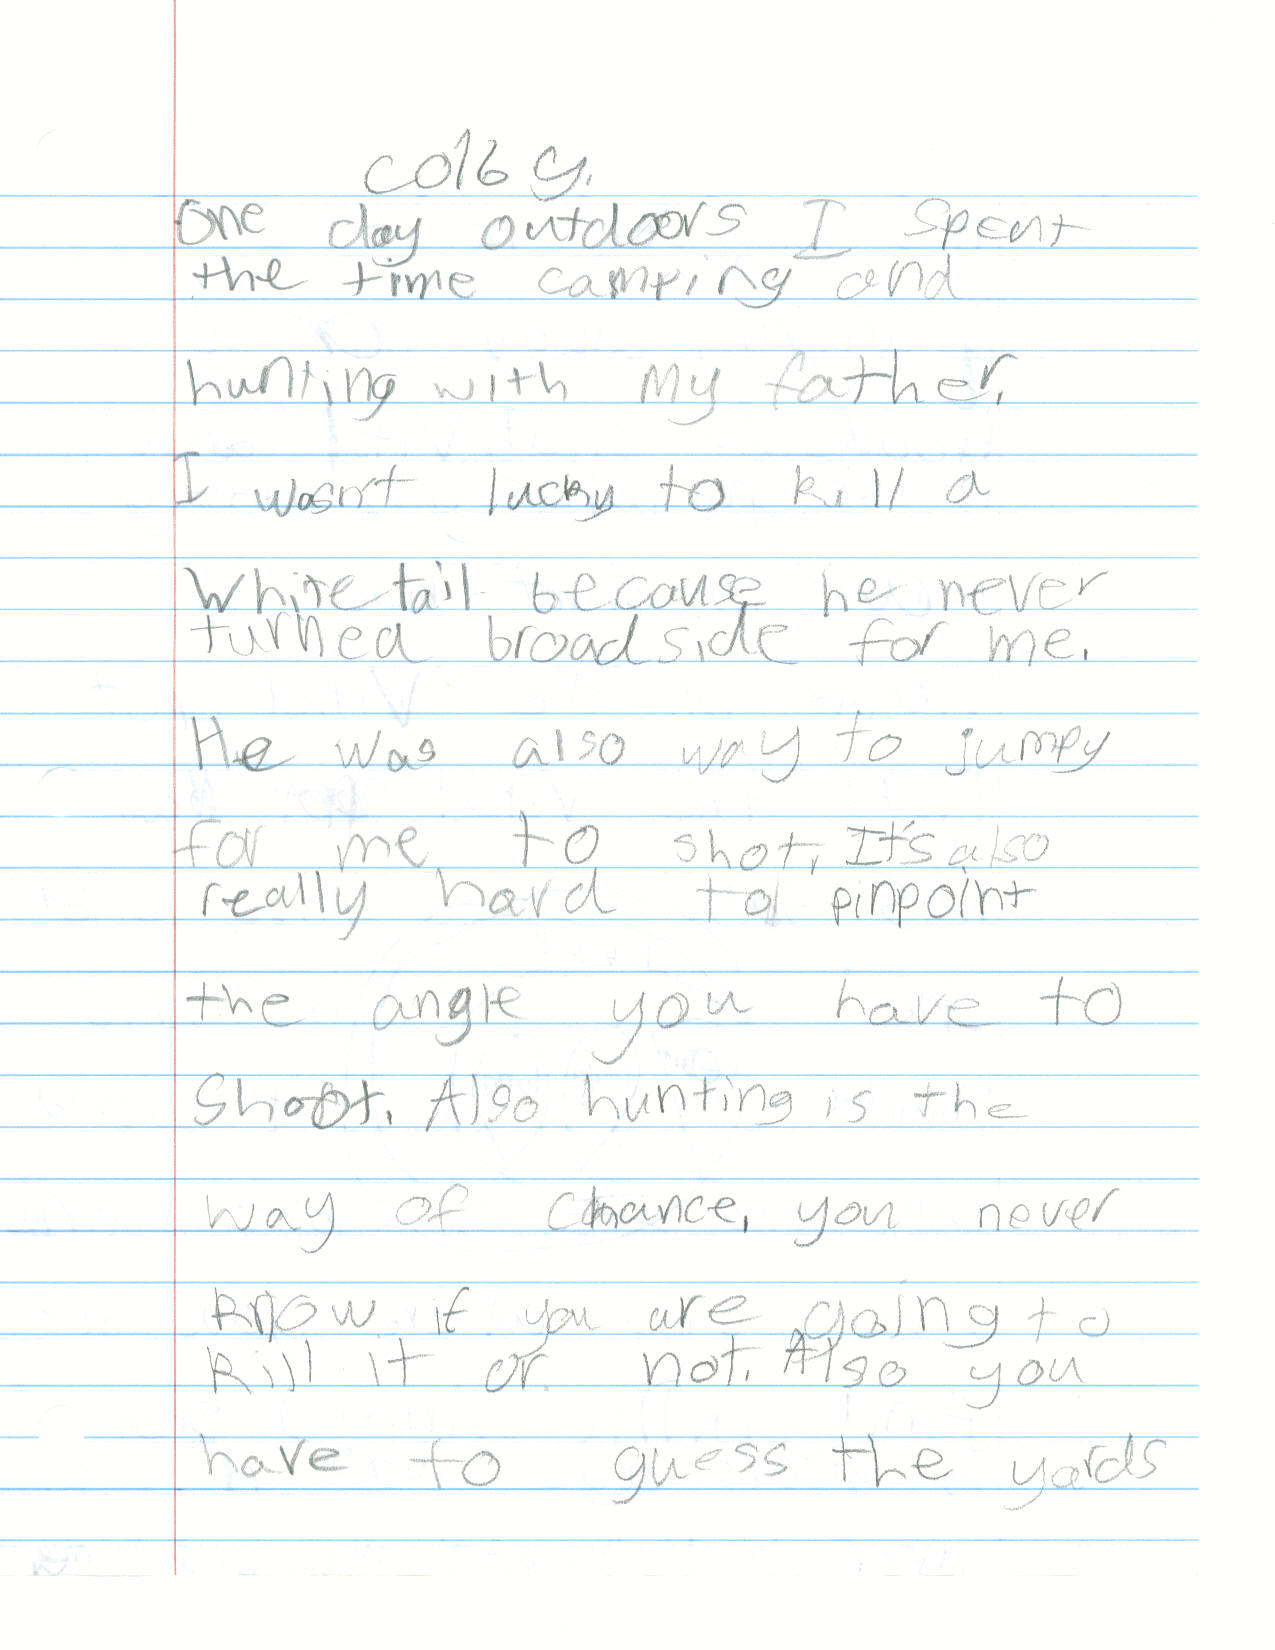 Colby.
One day outdoors I spent
the time camping and
hunting with my father.
I wasn't lucky to kill a
Whitetail because he never
turned broadside for me.
He was also way to jumpy
for me to shot. It's also
really hard to pinpoint
the angle you have to
Shoot. Also hunting is the
way of chance, you never
know if you are going to
kill it or not. Also you
have to guess the yards